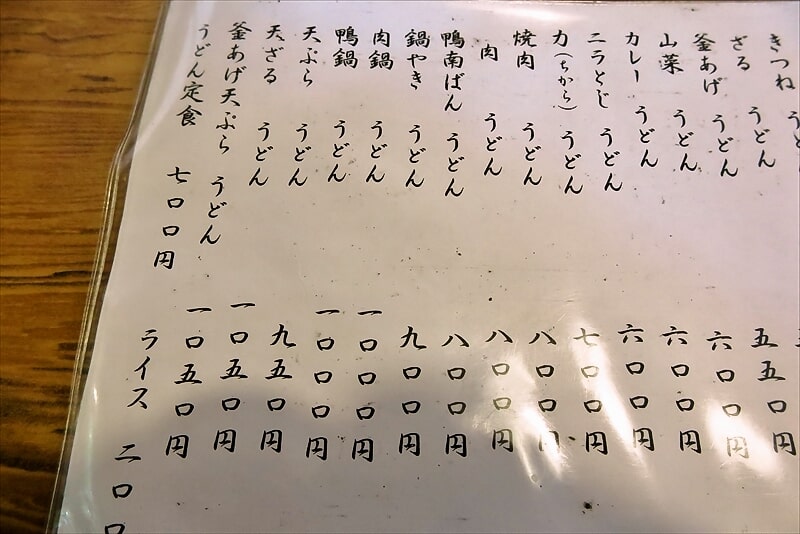 きつね
ざる うどん
釜あげ うどん 五五〇円
山菜 うどん 六〇〇円
カレー うどん 六〇〇円
ニラとじ うどん 六〇〇円
力(ちから) うどん 七〇〇円
焼肉 うどん 八〇〇円
肉 うどん 八〇〇円
鴨南ばん うどん 八〇〇円
鍋やき うどん 九〇〇円
肉鍋 うどん 一〇〇〇円
鴨鍋 うどん 一〇〇〇円
天ぷら うどん 九五〇円
天ざる うどん 一〇五〇円
釜あげ天ぷら うどん 一〇五〇円
うどん定食 七〇〇円
ライス 二〇〇